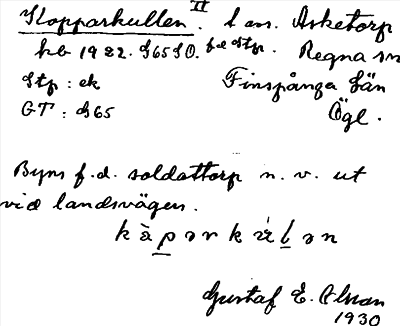 Kopparkullen. II l. an. Asketorp
hb 1922. G65SO. f.d. Stp. Regna sn
Stp: ek Finspånga län
GT: G65 Ögl.
Byns f.d. soldattorp n.v. ut
vid landsvägen.
kàpərkúlən
Gustaf E. Olsson
1930